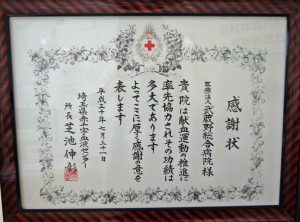 感謝状
医療法人武蔵野総合病院様
貴院は献血運動の推進に
率先協力されその功績は
多大であります
よってここに厚く感謝の意を
表します
平成二十年七月二十一日
埼玉県赤十字血液センター
所長 芝池伸彰